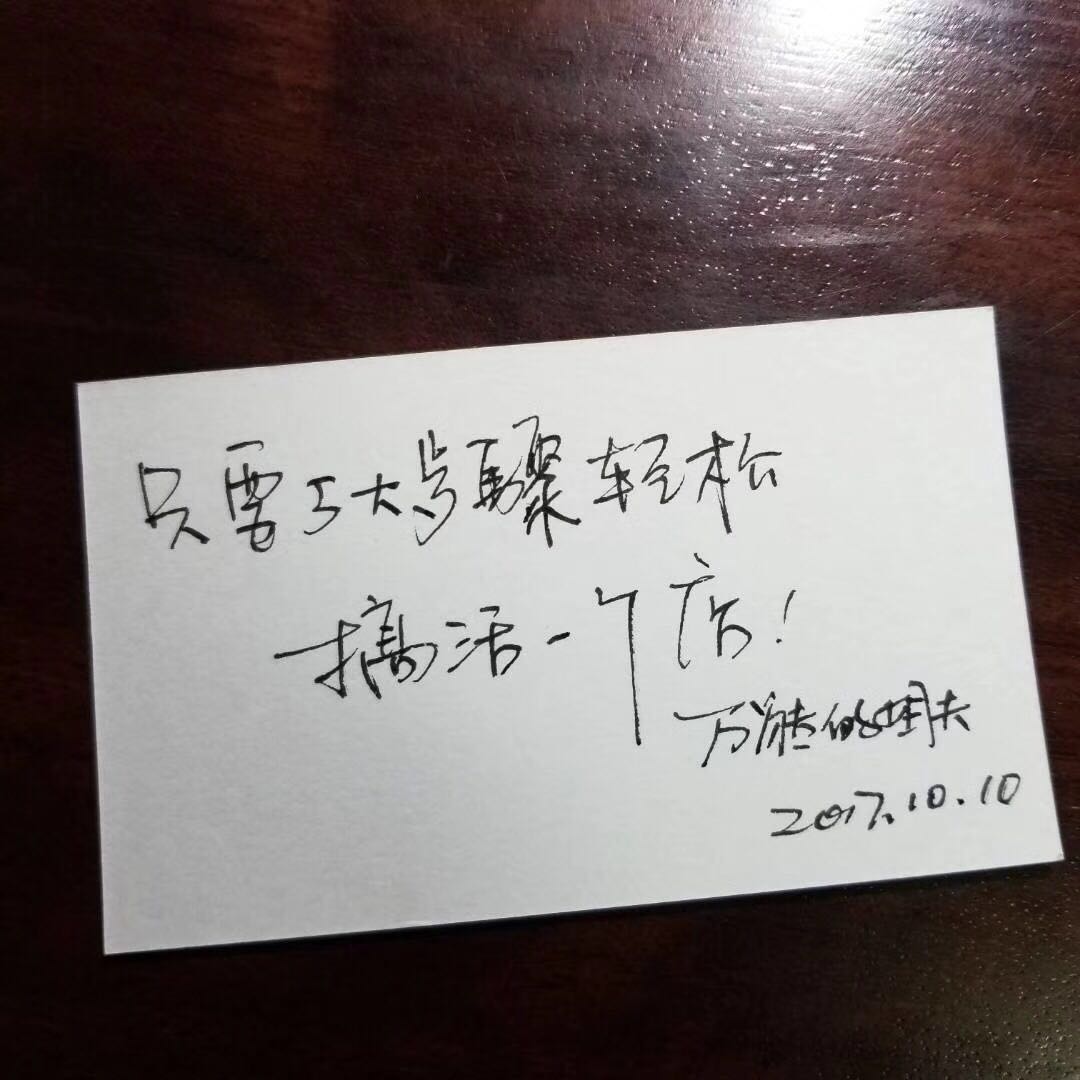 只需5大步骤轻松
搞活一个店!
万能的
2017.10.10